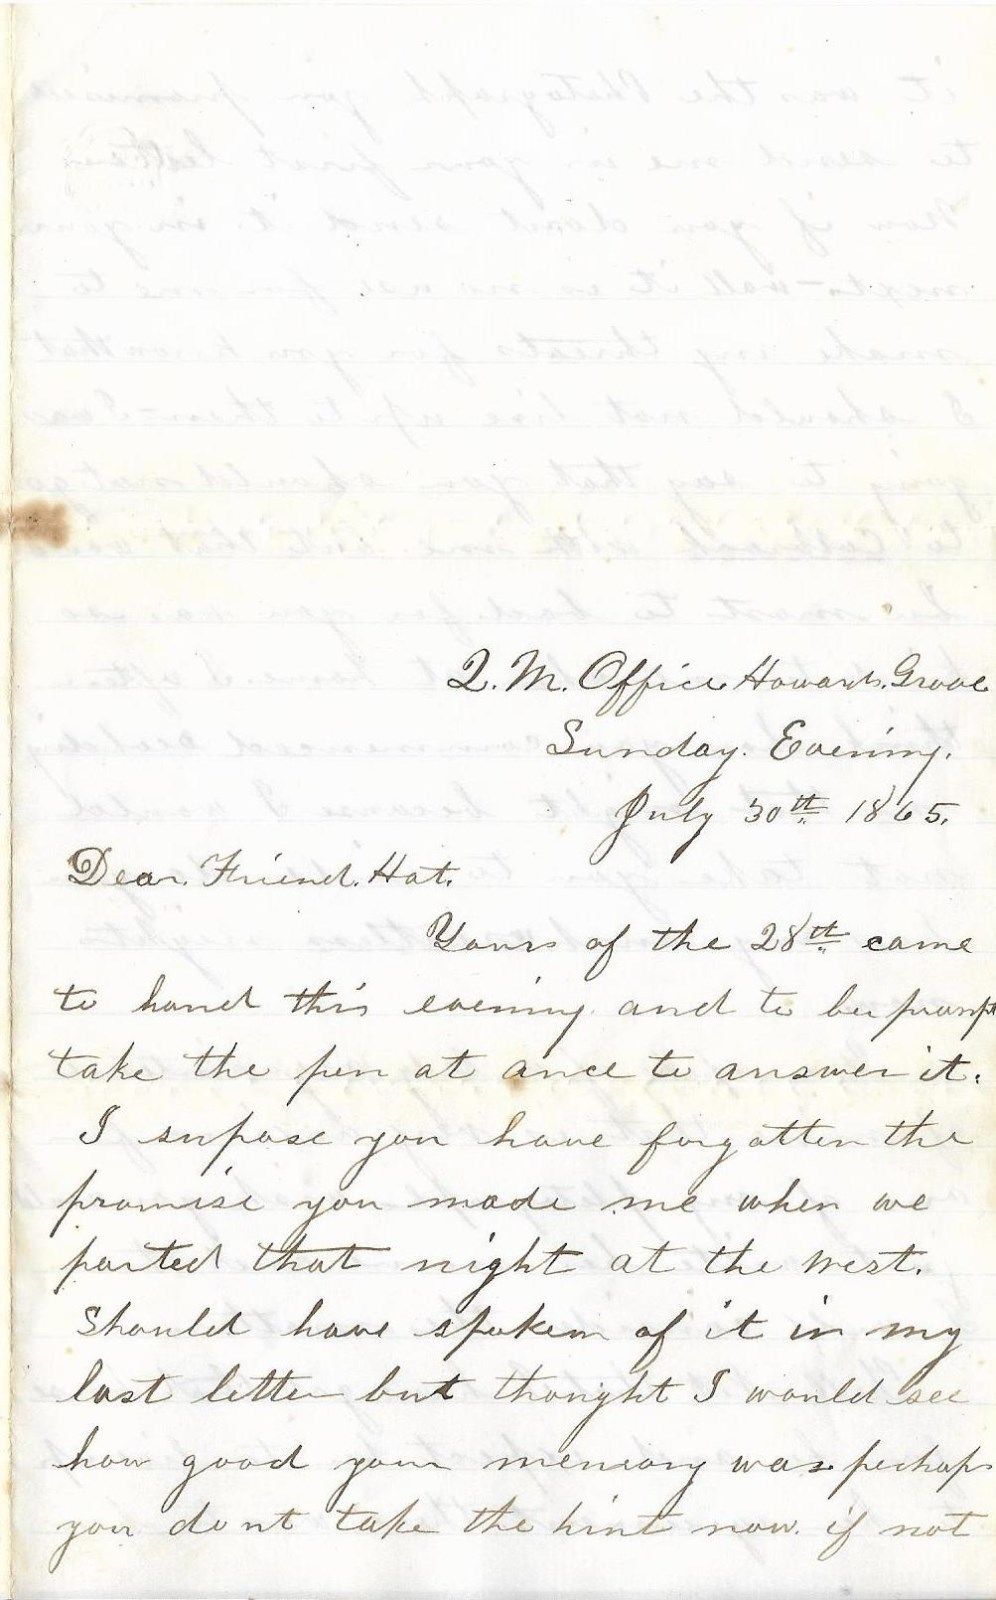 Q. M. Office Howards. Grove
Sunday. Evening.
July 30th 1865.
Dear. Friend. Hat.
Yours of the 28th came
to hand this evening and to be prompt
take the pen at once to answer it.
I supose you have forgotten the
promise you made me when we
parted that night at the West.
Should have spoken of it in my
last letter but thought I would see
how good your memory was perhaps
you dont take the hint now. if not